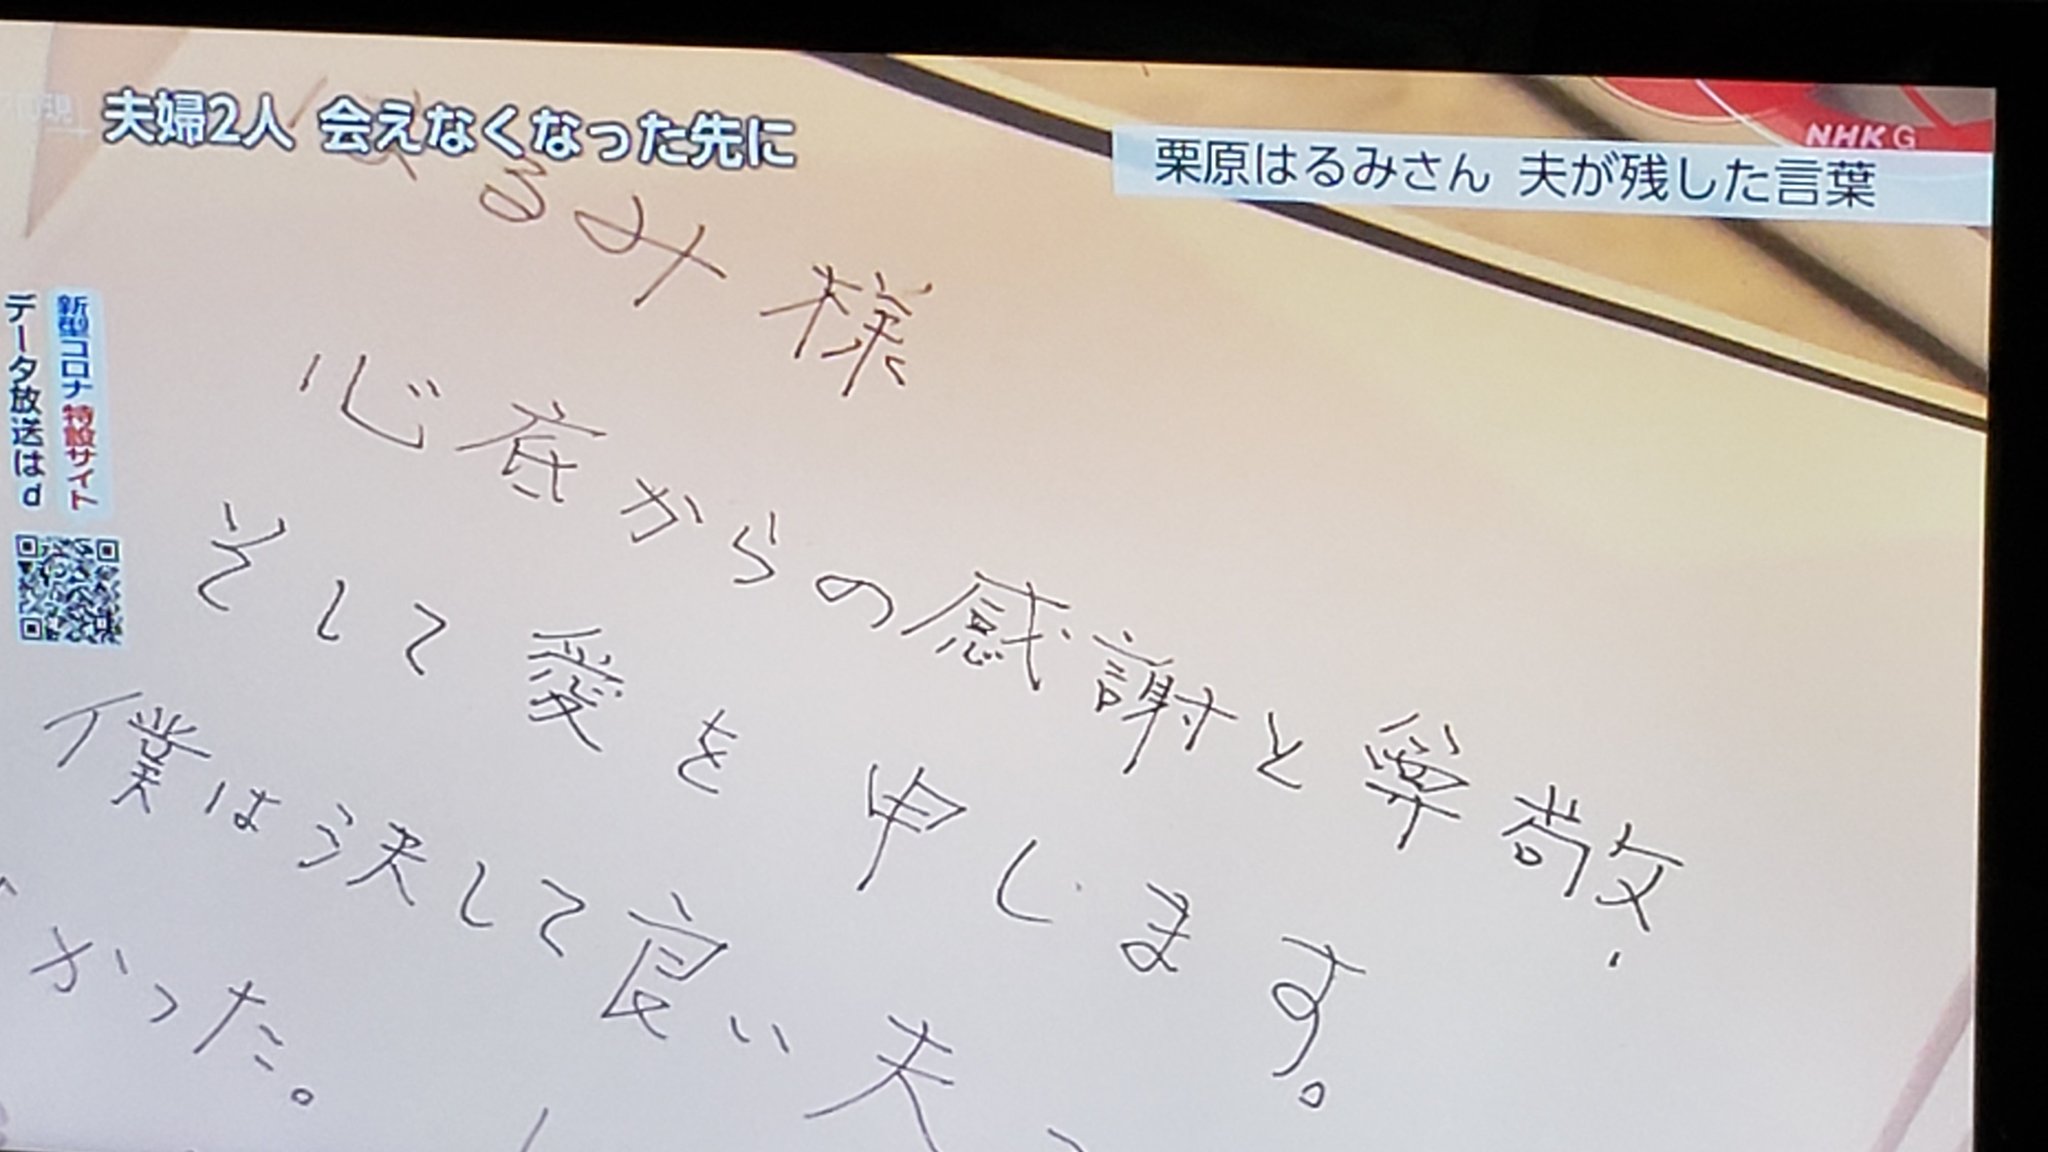 夫婦2人 会えなくなった先に
NHK G
栗原はるみさん 夫が残した言葉
新型コロナ 特設サイト
データ放送はd
はるみ様
心底からの感謝と尊敬.
そして愛を申します。
僕は決して良い夫
かった。